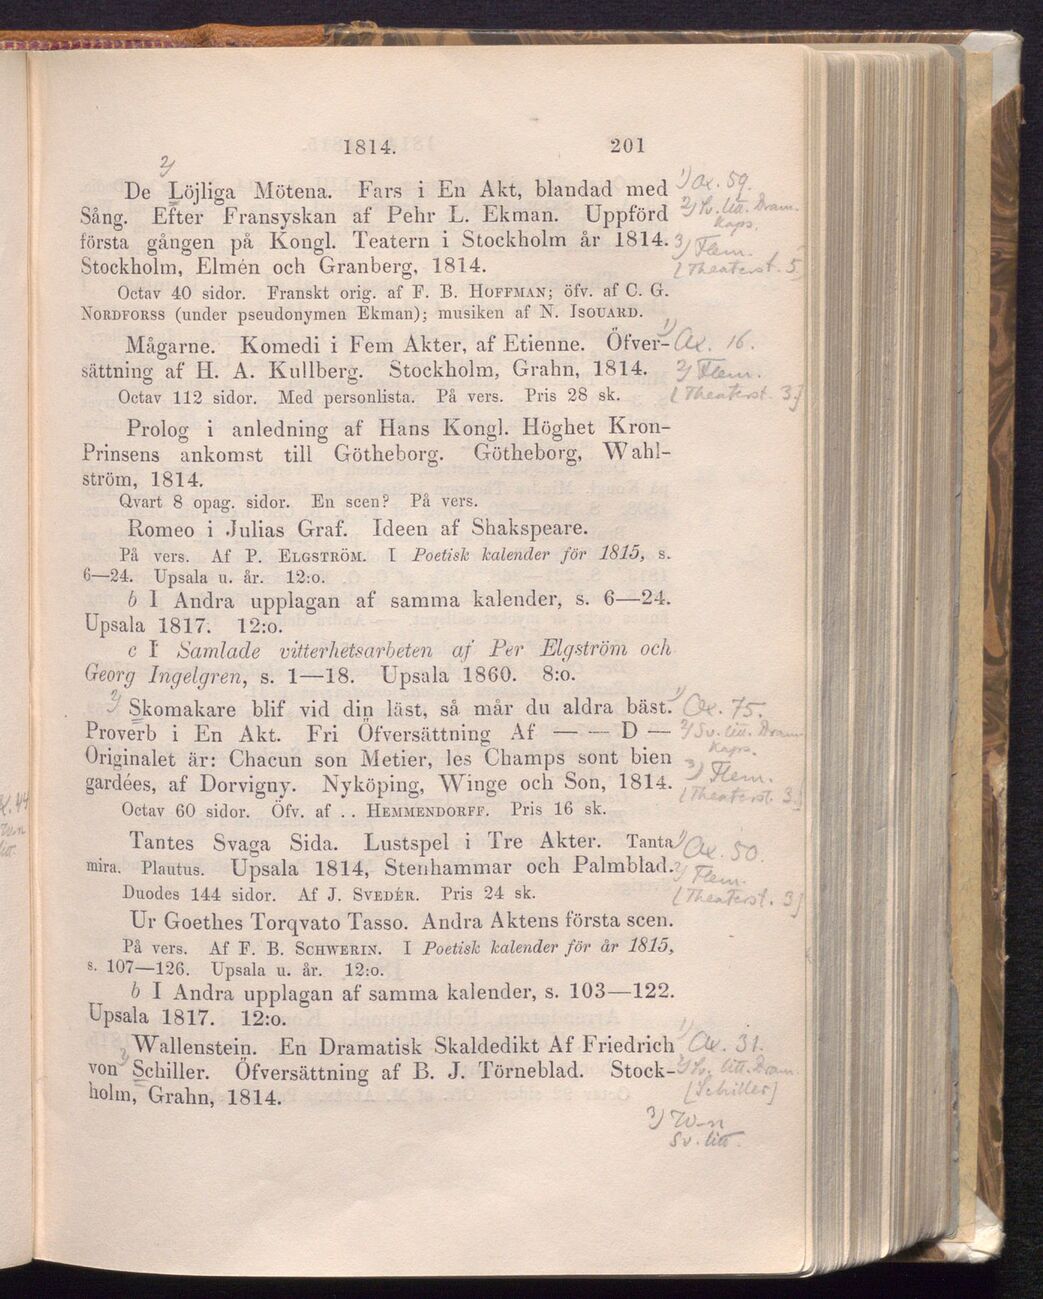 1814. 201
De Löjliga Mötena. Fars i En Akt, blandad med
Sång. Efter Fransyskan af Pehr L. Ekman. Uppförd
första gången på Kongl. Teatern i Stockholm år 1814.
Stockholm, Elmén och Granberg, 1814.
Octav 40 sidor. Franskt orig. af F. B. HOFFMAN; öfv. af C. G.
NORDFORSS (under pseudonymen Ekman); musiken af N. ISOUARD.
Mågarne. Komedi i Fem Akter, af Etienne. Öfver-
sättning af H. A. Kullberg. Stockholm, Grahn, 1814.
Octav 112 sidor. Med personlista. På vers. Pris 28 sk.
Prolog i anledning af Hans Kongl. Höghet Kron-
Prinsens ankomst till Götheborg. Götheborg, Wahl-
ström, 1814.
Qvart 8 opag. sidor. En scen? På vers.
Romeo i Julias Graf. Ideen af Shakspeare.
På vers. Af P. ELGSTRÖM. I Poetisk kalender för 1815, s.
6—24. Upsala u. år. 12:o.
b I Andra upplagan af samma kalender, s. 6—24.
Upsala 1817. 12:o.
c I Samlade vitterhetsarbeten af Per Elgström och
Georg Ingelgren, s. 1—18. Upsala 1860. 8:o.
2) Skomakare blif vid din läst, så mår du aldra bäst.
Proverb i En Akt. Fri Öfversättning Af — — D —
Originalet är: Chacun son Metier, les Champs sont bien
gardées, af Dorvigny. Nyköping, Winge och Son, 1814.
Octav 60 sidor. Öfv. af . . HEMMENDORFF. Pris 16 sk.
Tantes Svaga Sida. Lustspel i Tre Akter. Tanta
mira. Plautus. Upsala 1814, Stenhammar och Palmblad.
Duodes 144 sidor. Af J. SVEDÉR. Pris 24 sk.
Ur Goethes Torqvato Tasso. Andra Aktens första scen.
På vers. Af F. B. SCHWERIN. I Poetisk kalender för år 1815,
s. 107—126. Upsala u. år. 12:o.
b I Andra upplagan af samma kalender, s. 103—122.
Upsala 1817. 12:o.
Wallenstein. En Dramatisk Skaldedikt Af Friedrich
von Schiller. Öfversättning af B. J. Törneblad. Stock-
holm, Grahn, 1814.
2)
1) Ax. 59.
2) Sv. litt. Dram.
Kaps.
3) Flem.
[Theaterst. 5]
1) Ax. 16.
2) Flem.
[Theaterst. 3]
1) Ax. 75.
2) Sv. litt. Dram.
Kaps.
3) Flem.
[Theaterst. 3]
1) Ax. 50.
2) Flem.
[Theaterst. 3]
1) Ax. 31.
2) Sv. litt. Dram.
[Schiller]
3)
Sv. litt.